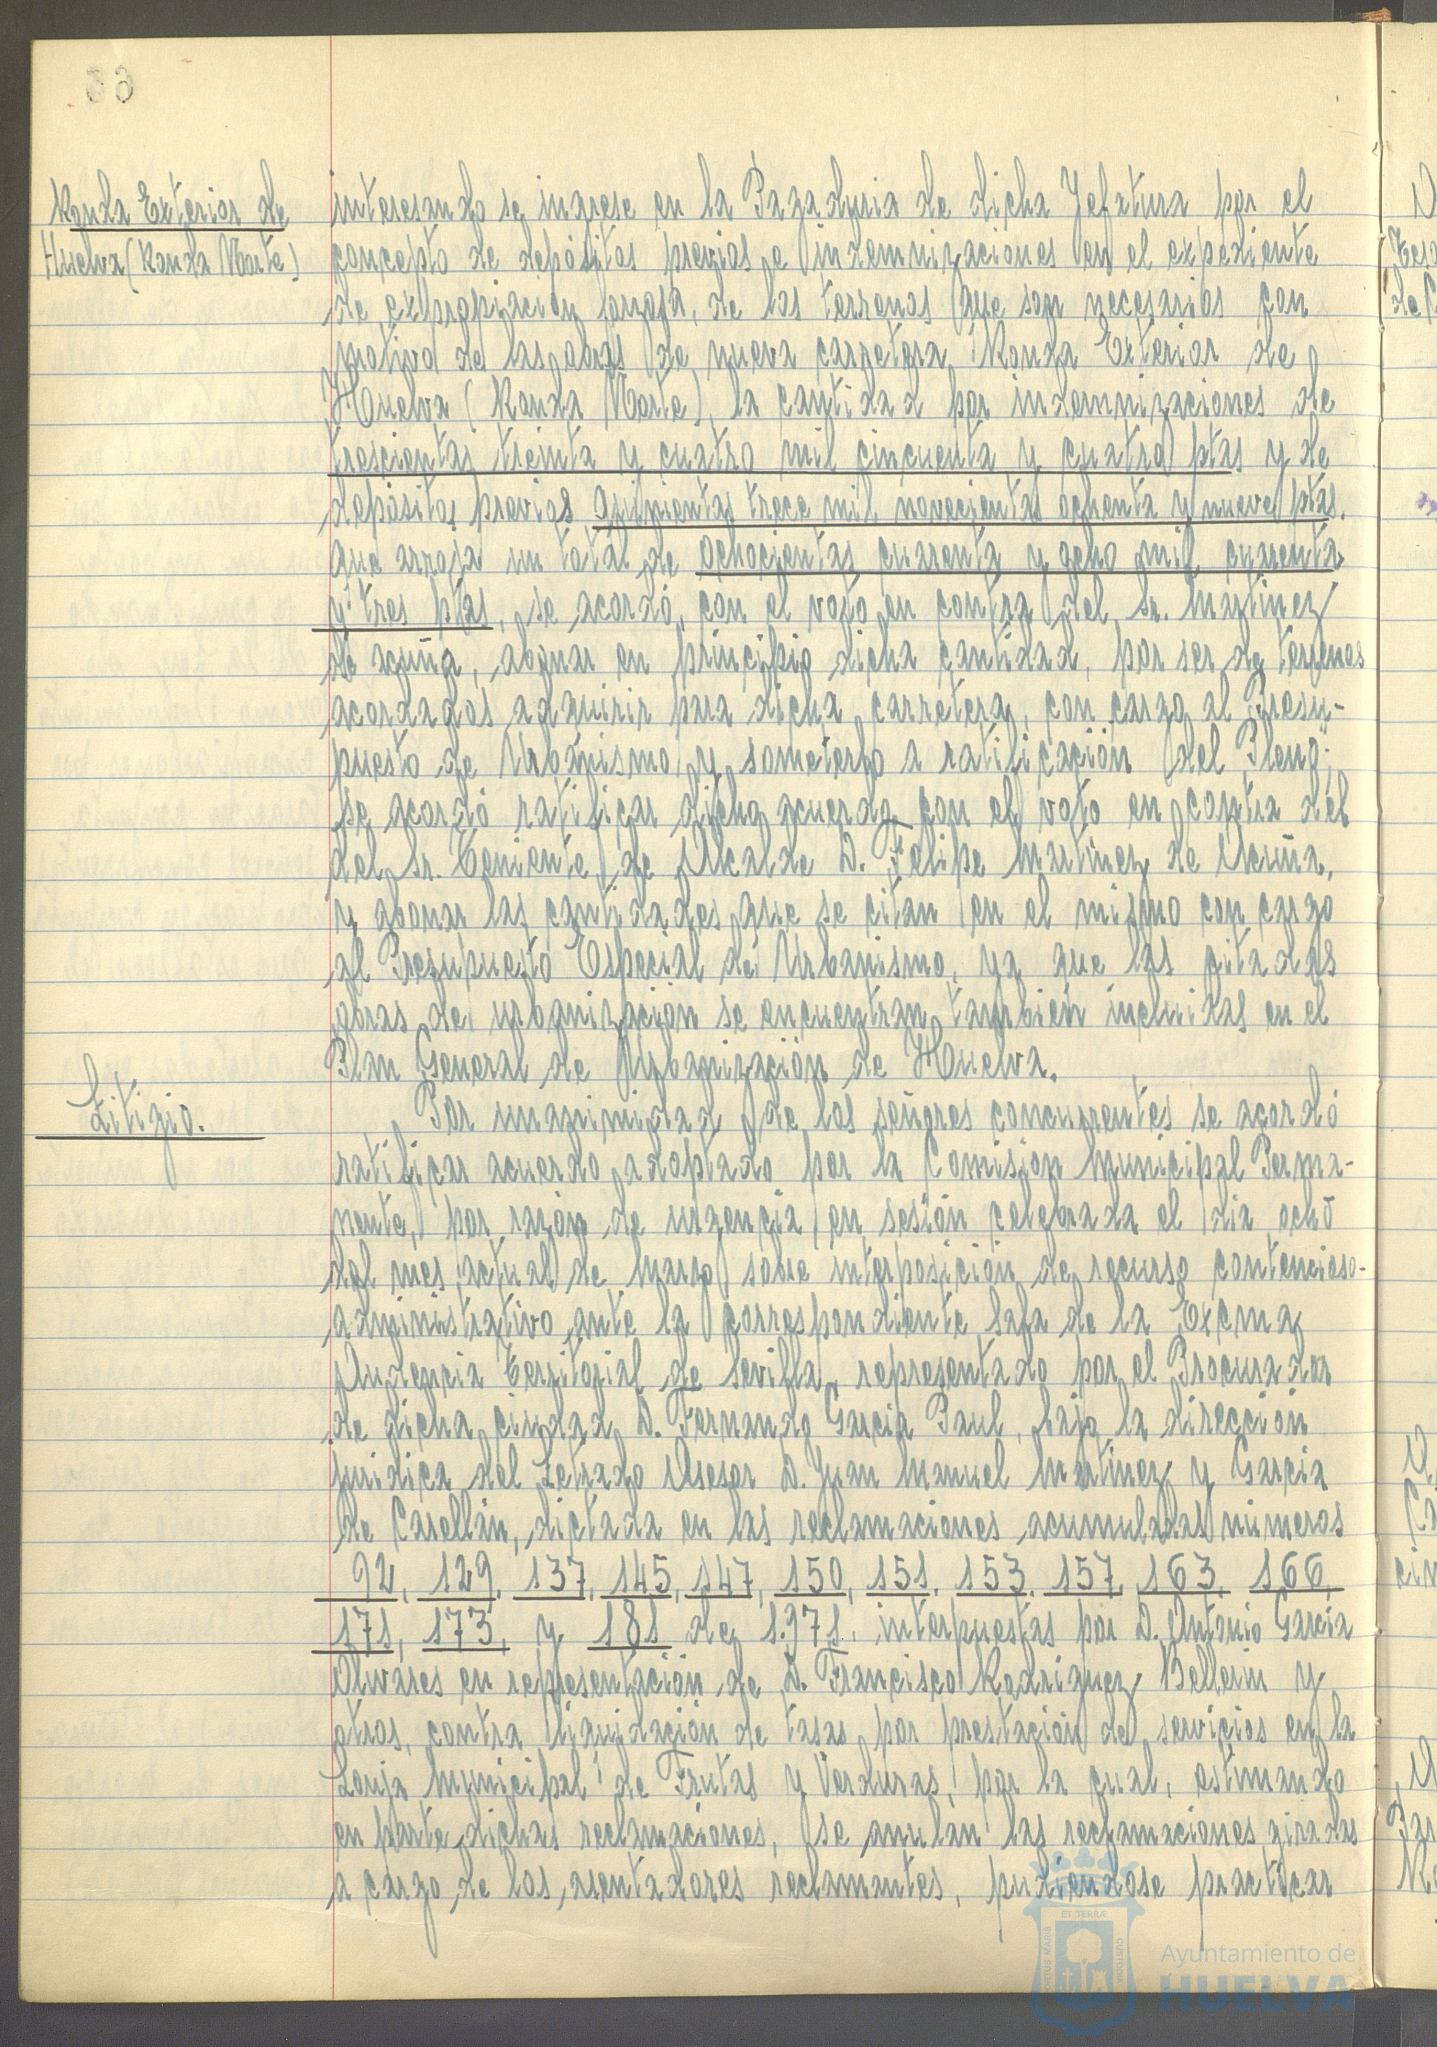 Ronda Exterior de
Huelva (Ronda Norte)
interesando se ingrese en la Pagaduria de dicha Jefatura por el
concepto de depósitos previos e indemnizaciones en el expediente
de expropiación forzosa, de los terrenos que son necesarios con
motivo de las obras de nueva carretera Ronda Exterior de
Huelva (Ronda Norte), la cantidad por indemnizaciones de
trescientas treinta y cuatro mil cincuenta y cuatro ptas y de
depósitos previos quinientas trece mil novecientas ochenta y nueve ptas.
que arroja un total de ochocientas cuarenta y ocho mil cuarenta
y tres ptas, se acordó, con el voto en contra del Sr. Martinez
de Acuña, abonar en principio dicha cantidad, por ser de terrenos
acordados adquirir para dicha carretera, con cargo al Presu-
puesto de Urbanismo y someterlo a ratificación del Pleno";
se acordó ratificar dicho acuerdo con el voto en contra del
del Sr. Teniente de Alcalde D. Felipe Martinez de Acuña,
y abonar las cantidades que se citan en el mismo con cargo
al Presupuesto Especial de Urbanismo, ya que las citadas
obras de urbanización se encuentran también incluidas en el
Plan General de Urbanización de Huelva.
Litigio.
Por unanimidad de los señores concurrentes se acordó
ratificar acuerdo adoptado por la Comisión Municipal Perma-
nente, por razón de urgencia en sesión celebrada el dia ocho
del mes actual de Marzo sobre interposición de recurso contencioso-
administrativo ante la correspondiente Sala de la Excma
Audiencia Territorial de Sevilla, representado por el Procurador
de dicha ciudad D. Fernando Garcia Paul, bajo la dirección
juridica del Letrado Asesor D. Juan Manuel Martinez y Garcia
de Carellán, dictada en las reclamaciones acumuladas números
92, 129, 137, 145, 147, 150, 151, 153, 157, 163, 166,
171, 173, y 181 de 1.971, interpuestas por D. Antonio Garcia
Olivares en representación de D. Francisco Rodriguez Bellerin y
otros, contra liquidación de tasas por prestación de servicios en la
Lonja Municipal de Frutas y Verduras, por la cual, estimando
en parte dichas reclamaciones, se anulan las reclamaciones giradas
a cargo de los asentadores reclamantes, pudiendose practicar
Ayuntamiento de
HUELVA